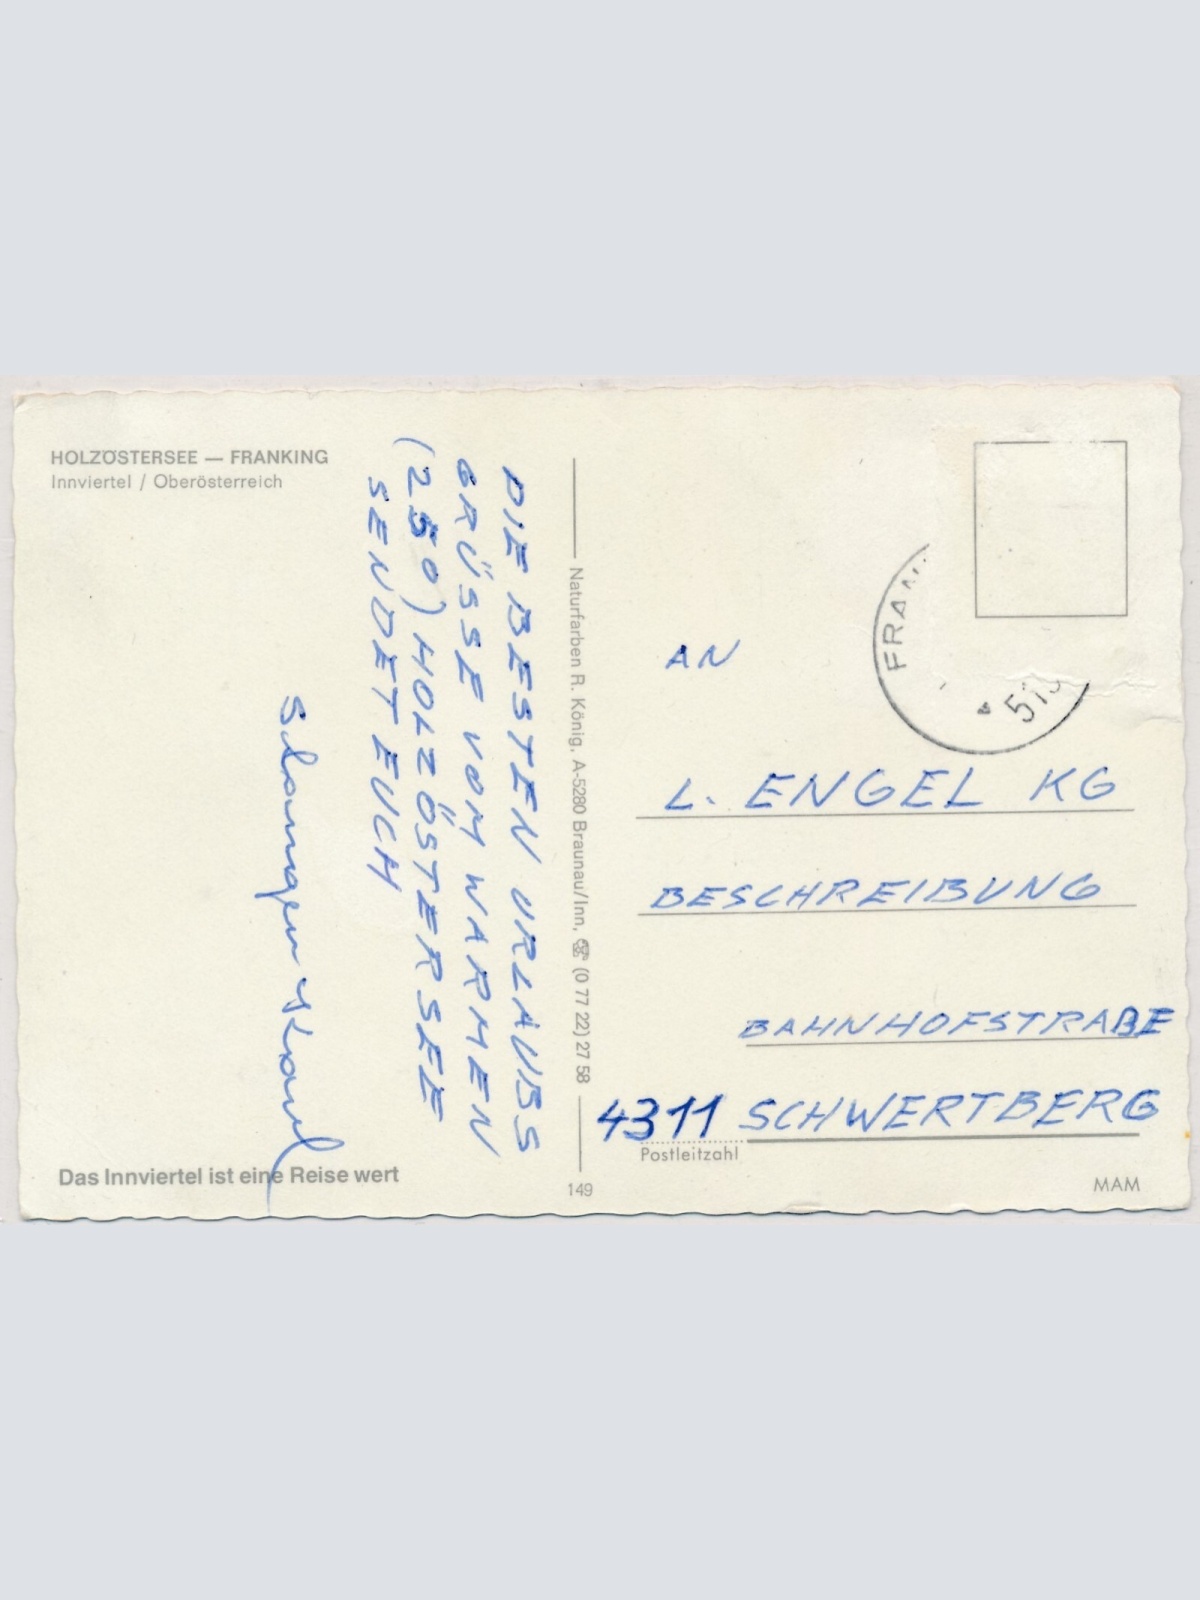 HOLZÖSTERSEE — FRANKING
Innviertel / Oberösterreich
DIE BESTEN URLAUBS
GRÜSSE VOM WARMEN
(250) HOLZÖSTERSEE
SENDET EUCH
Karl
Das Innviertel ist eine Reise wert
Naturfarben R. König, A-5280 Braunau/Inn, ☎ (0 77 22) 27 58
149
FRAN
AN
L. ENGEL KG
BESCHREIBUNG
BAHNHOFSTRAßE
4311 SCHWERTBERG
Postleitzahl
MAM